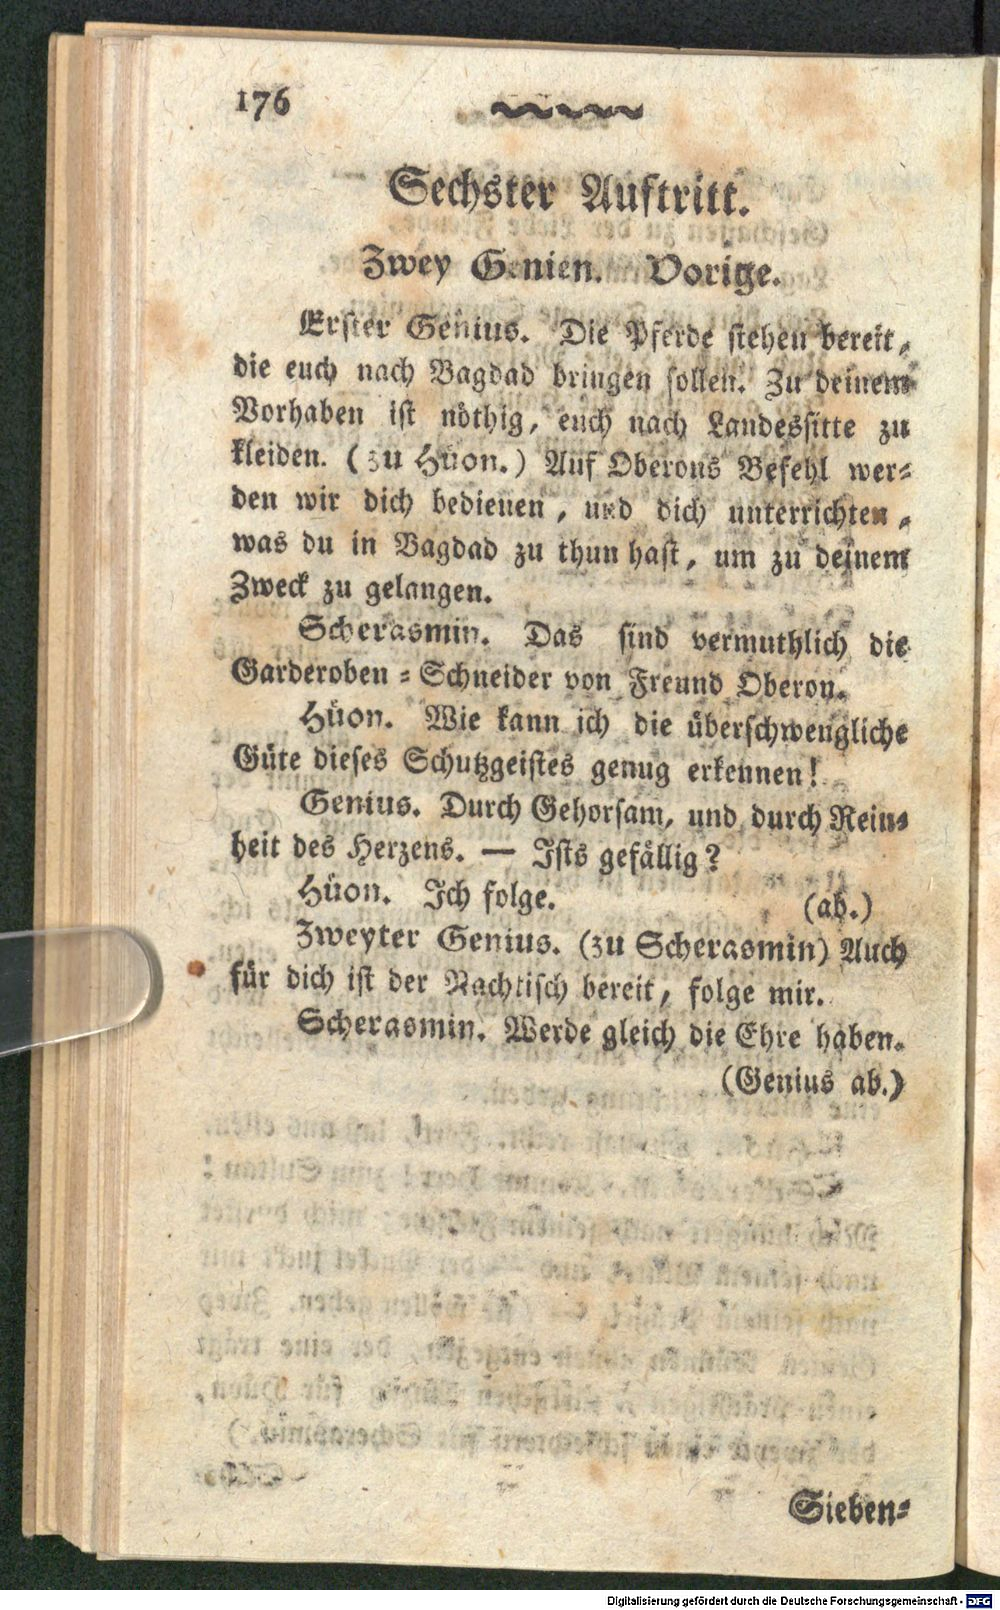 176
Sechster Auftritt.
Zwey Genien. Vorige.
Erster Genius. Die Pferde stehen bereit,
die euch nach Bagdad bringen sollen. Zu deinem
Vorhaben ist nöthig, euch nach Landessitte zu
kleiden. (zu Hüon.) Auf Oberons Befehl wer-
den wir dich bedienen, und dich unterrichten,
was du in Bagdad zu thun hast, um zu deinem
Zweck zu gelangen.
Scherasmin. Das sind vermuthlich die
Garderoben-Schneider von Freund Oberon.
Hüon. Wie kann ich die überschwengliche
Güte dieses Schutzgeistes genug erkennen!
Genius. Durch Gehorsam, und durch Rein-
heit des Herzens. — Ists gefällig?
Hüon. Ich folge. (ab.)
Zweyter Genius. (zu Scherasmin) Auch
für dich ist der Nachtisch bereit, folge mir.
Scherasmin. Werde gleich die Ehre haben.
(Genius ab.)
Sieben-
Digitalisierung gefördert durch die Deutsche Forschungsgemeinschaft - DFG